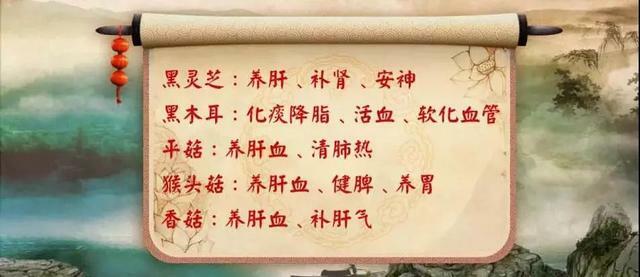 黑灵芝：养肝、补肾、安神
黑木耳：化痰降脂、活血、软化血管
平菇：养肝血、清肺热
猴头菇：养肝血、健脾、养胃
香菇：养肝血、补肝气